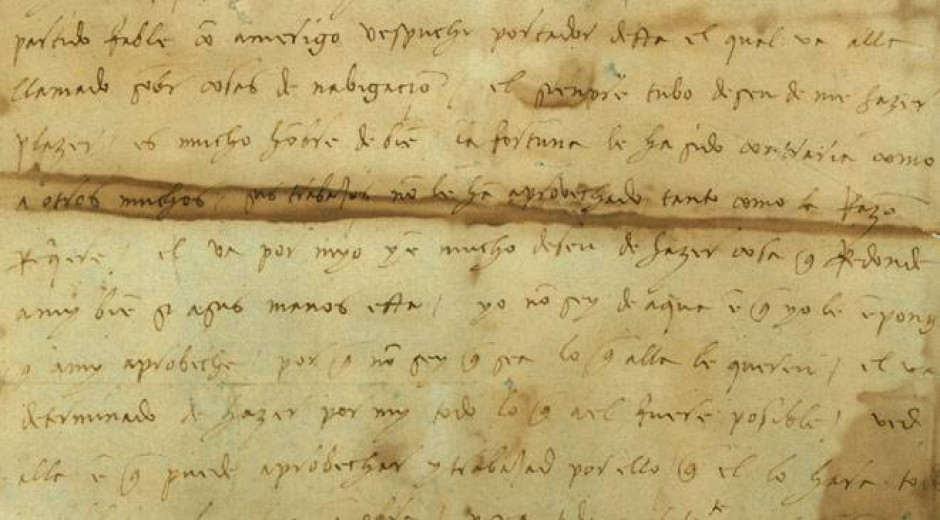 partido fable cõ amerigo vespuchi portador desta el qual va alla
llamado sobr cosas de nabigaciõ / el sienpre tubo deseu de me hazer
plazer / es mucho hõbre de biẽ la fortuna le ha sido contraria como
a otros muchos / sus trabajos nõ le hã aprobechado tanto como la Razõ
Reqere / el va por myo y ẽ mucho deseu de hazer cosa q Redonde
a my biẽ si a sus manos esta / yo nõ sey de aqua ẽ q yo le ẽpong
y a my aprobeche por q nõ sey q sea lo q alla le queren / el va
determinado de hazer por my todo lo q a el fuere posible / ved
alla ẽ q puede aprobechar y trabajad por ello q el lo hara